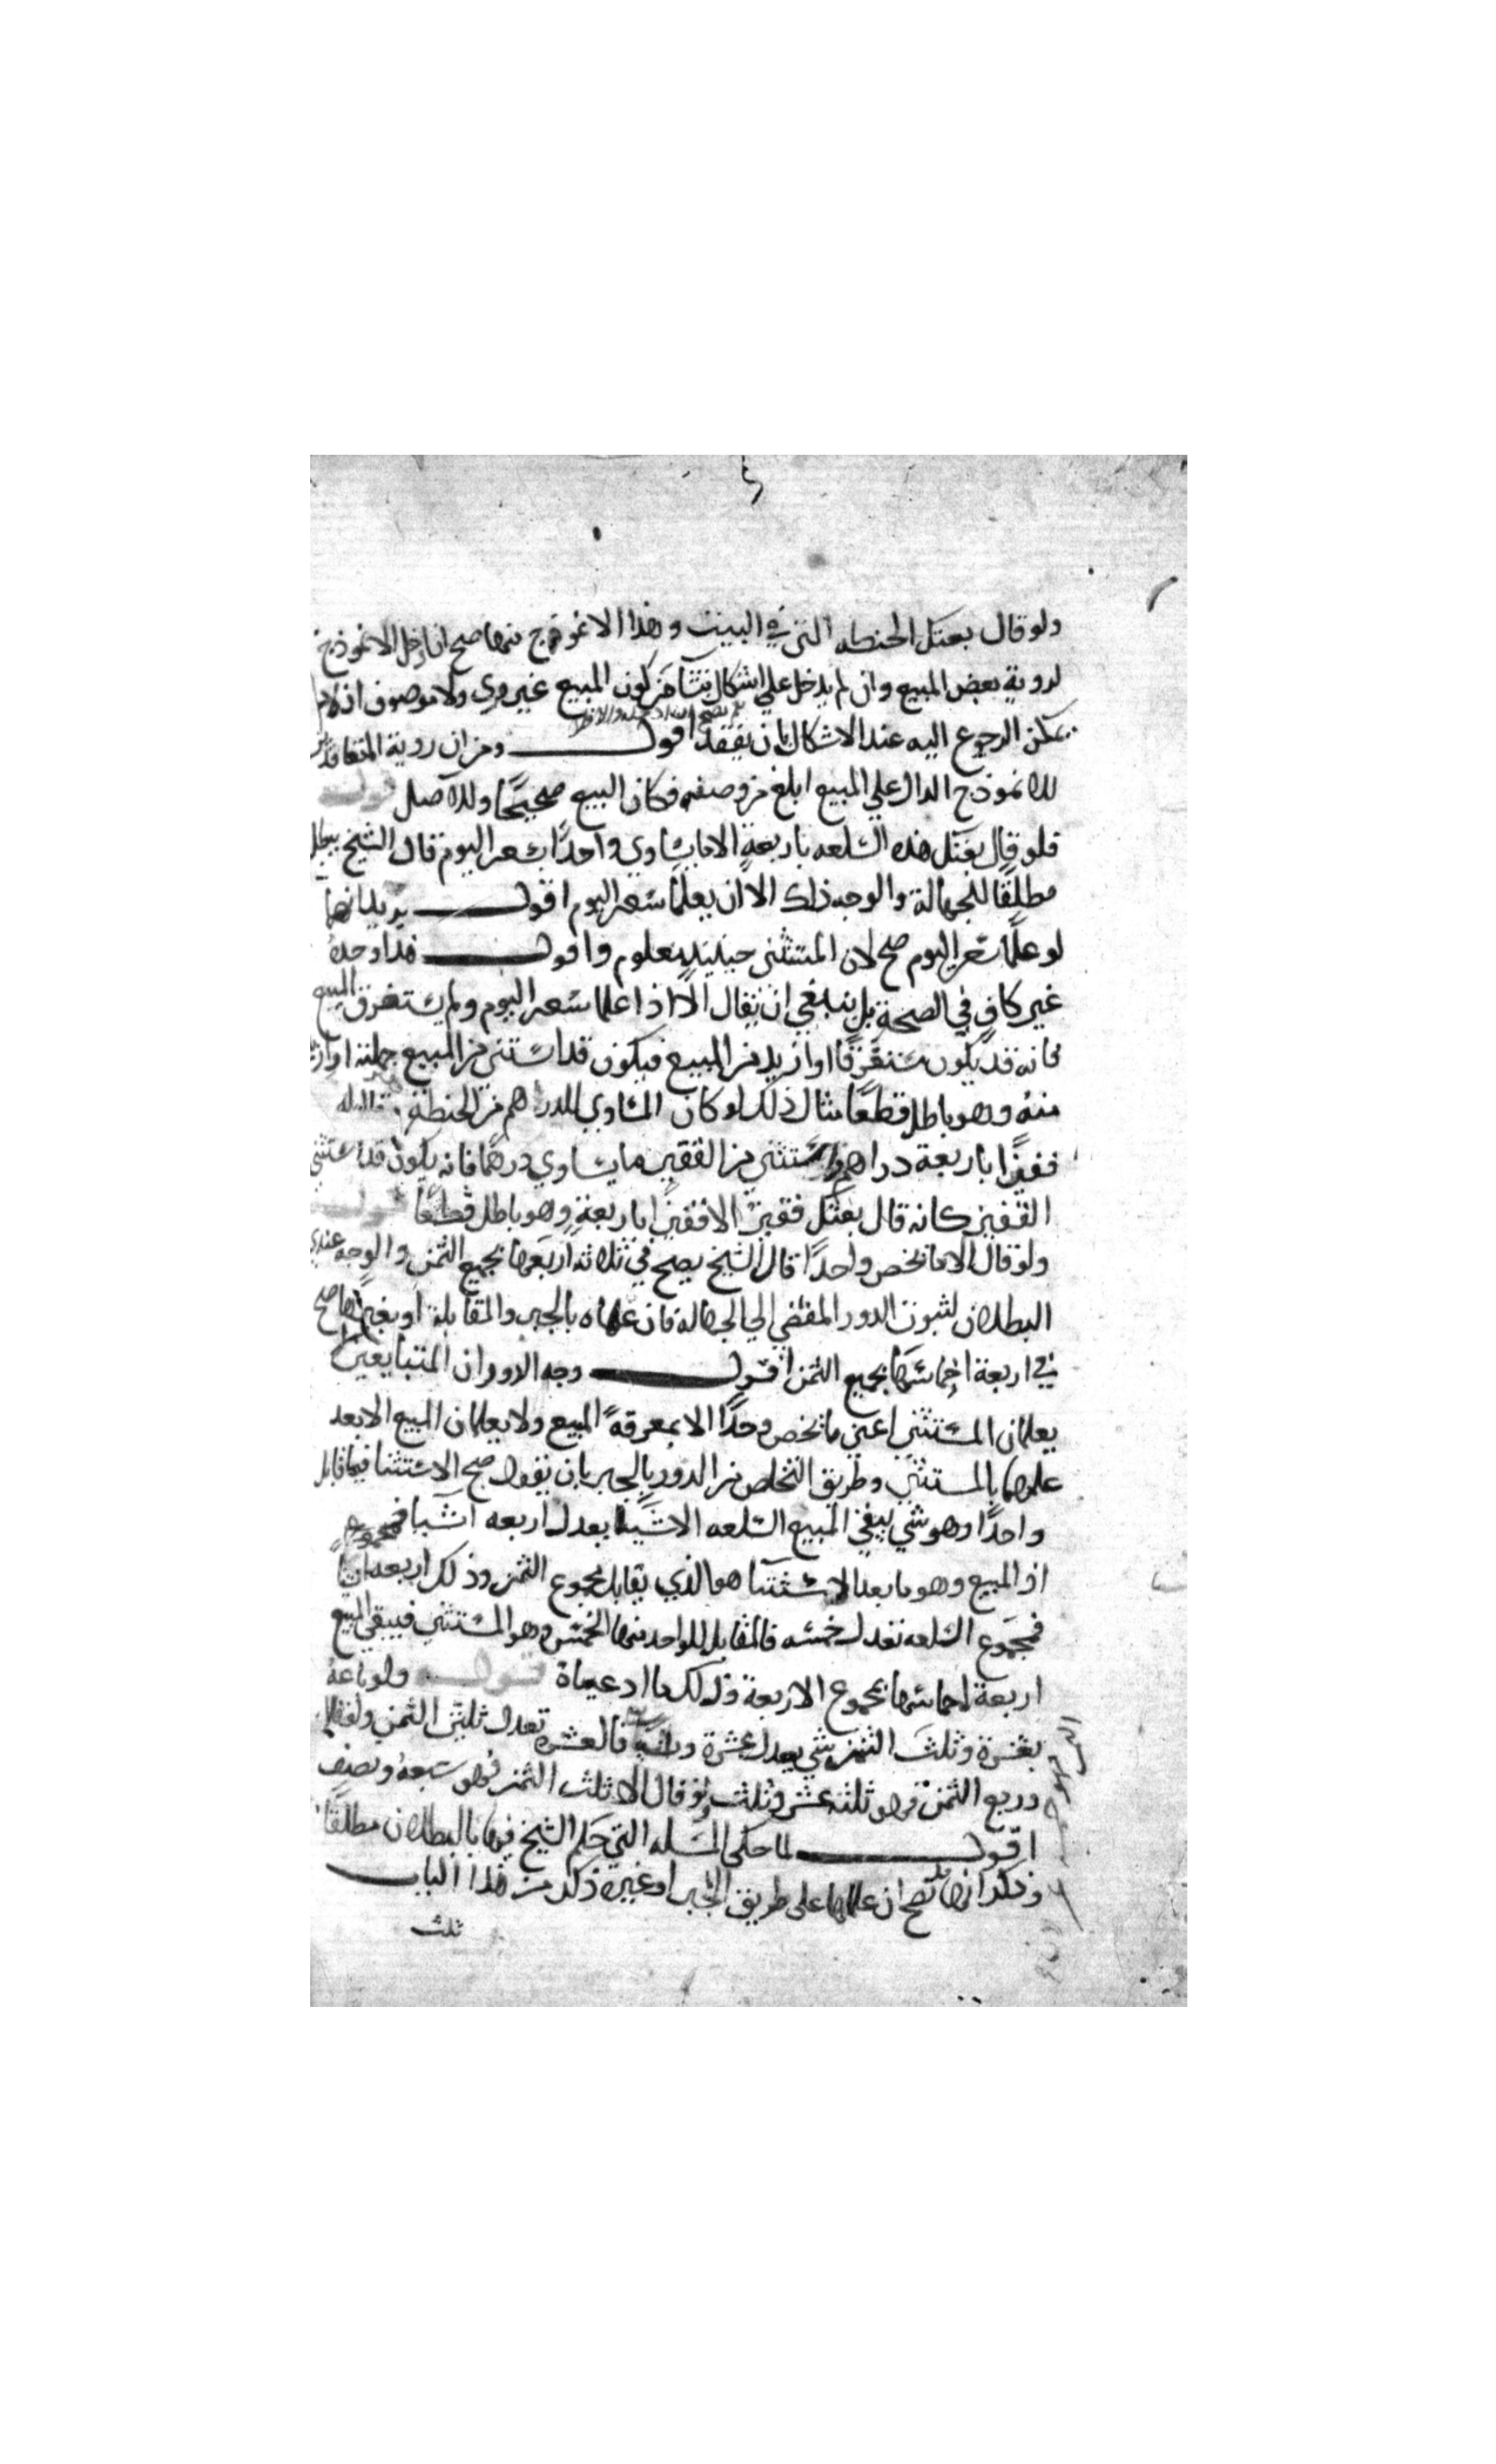 ولو قال بعتك الحنطه التي في البيت وهذا الانموذج منها صح ان ادخل الانموذج
لروية بعض المبيع وان لم يدخل علي اشكال ينشأ من كون المبيع غير مرئ ولا موصوف اذ لا
يمكن الرجوع اليه عند الاشكال بان يفقد اقول ومن ان روية المتعاقدين
للانموذج الدال علي المبيع ابلغ من وصفه فكان البيع صحيحًا ولاصل
فلو قال بعتك هذه السلعه باربعة الا ما يساوي واحدًا بسعر اليوم قال الشيخ يبطل
مطلقًا للجهالة والوجه ذلك الا ان يعلما سعر اليوم اقول يريد انهما
لو علما سعر اليوم صح لان المستثني حينيذ معلوم واقول هذا وحده
غير كاف في الصحة بل ينبغي ان يقال الا اذا علما سعر اليوم ولم يستغرق المبيع
فانه قد يكون مستغرقًا او ازيد من المبيع فيكون قد استثني من المبيع جملته او ازيد
منه وهو باطل قطعًا مثال ذلك لو كان المساوي للدرهم من الحنطة
قفيزًا باربعة دراهم واستثني من القفيز ما يساوي درهمًا فانه يكون قد استثني
القفيز كانه قال بعتك قفيزًا الا قفيزًا باربعة وهو باطل قطعًا
ولو قال الا ما يخص واحدًا قال الشيخ يصح في ثلاثه ارباعها بجميع الثمن والوجه عندي
البطلان لثبوت الدور المفضي الي الجهالة فان علماه بالجبر والمقابلة او بغيرهما صح
في اربعة اخماسها بجميع الثمن اقول وجه الدور ان المتبايعين لا
يعلمان المستثني اعني ما يخص واحدًا الا بمعرفة المبيع ولا يعلمان المبيع الا بعد
علمهما بالمستثني وطريق التخلص من الدور بالجبر بان نقول صح الاستثنا فيما قابل
واحدًا وهو شي يبقي المبيع السلعه الا شيا يعدل اربعه اشيا
اذ المبيع وهو ما بعد الاستثنا هو الذي يقابل مجموع الثمن وذلك اربعه اشيا
فمجموع السلعه تعدل خمسه فالمقابل للواحد منها الخمس وهو المستثني فيبقي المبيع
اربعة اخماسها بمجموع الاربعة وذلك ما ادعيناه قوله ولو باعه
بعشرة وثلث الثمن شي يعدل عشرة وثلث شي فالعشره تعدل ثلثي الثمن ولو قال
وربع الثمن فهو ثلثه عشر وثلث ولو قال الا ثلث الثمن فهو سبعه ونصف
اقول لما حكي المسله التي حكم الشيخ فيها بالبطلان مطلقًا
وذكر انها قد تصح ان علماها علي طريق الجبر او غيره ذكر من هذا الباب
ثلث